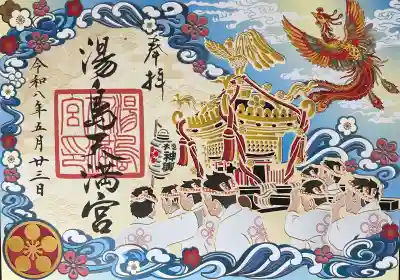 奉拝
湯島天満宮
令和八年五月廿三日